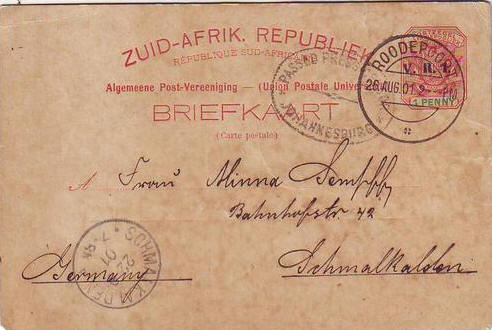 ZUID-AFRIK. REPUBLIEK
RÉPUBLIQUE SUD-AFRICAINE
Algemeene Post-Vereeniging — (Union Postale Universelle)
BRIEFKAART
(Carte postale)
PASSED PRESS
JOHANNESBURG
ROODEPOORT
26 AUG. 01
V. R. I.
1 PENNY
Frau Minna
Bahnhofstr 42
Schmalkalden
Germany
SCHMALKALDEN